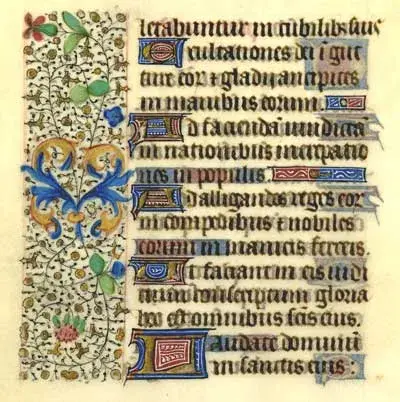 letabuntur in cubilibus suis
Exultationes dei i gut
ture eor & gladii ancipites
in manibus eorum.
Ad faciendā vindictā
in nationibus increpatio
nes in populis.
Ad alligandos reges eor
in compedibus & nobiles
eorum in manicis ferreis
Ut faciant in eis iudi
cium conscriptum gloria
hec est omnibus scīs eius.
Laudate dominū
in sanctis eius: